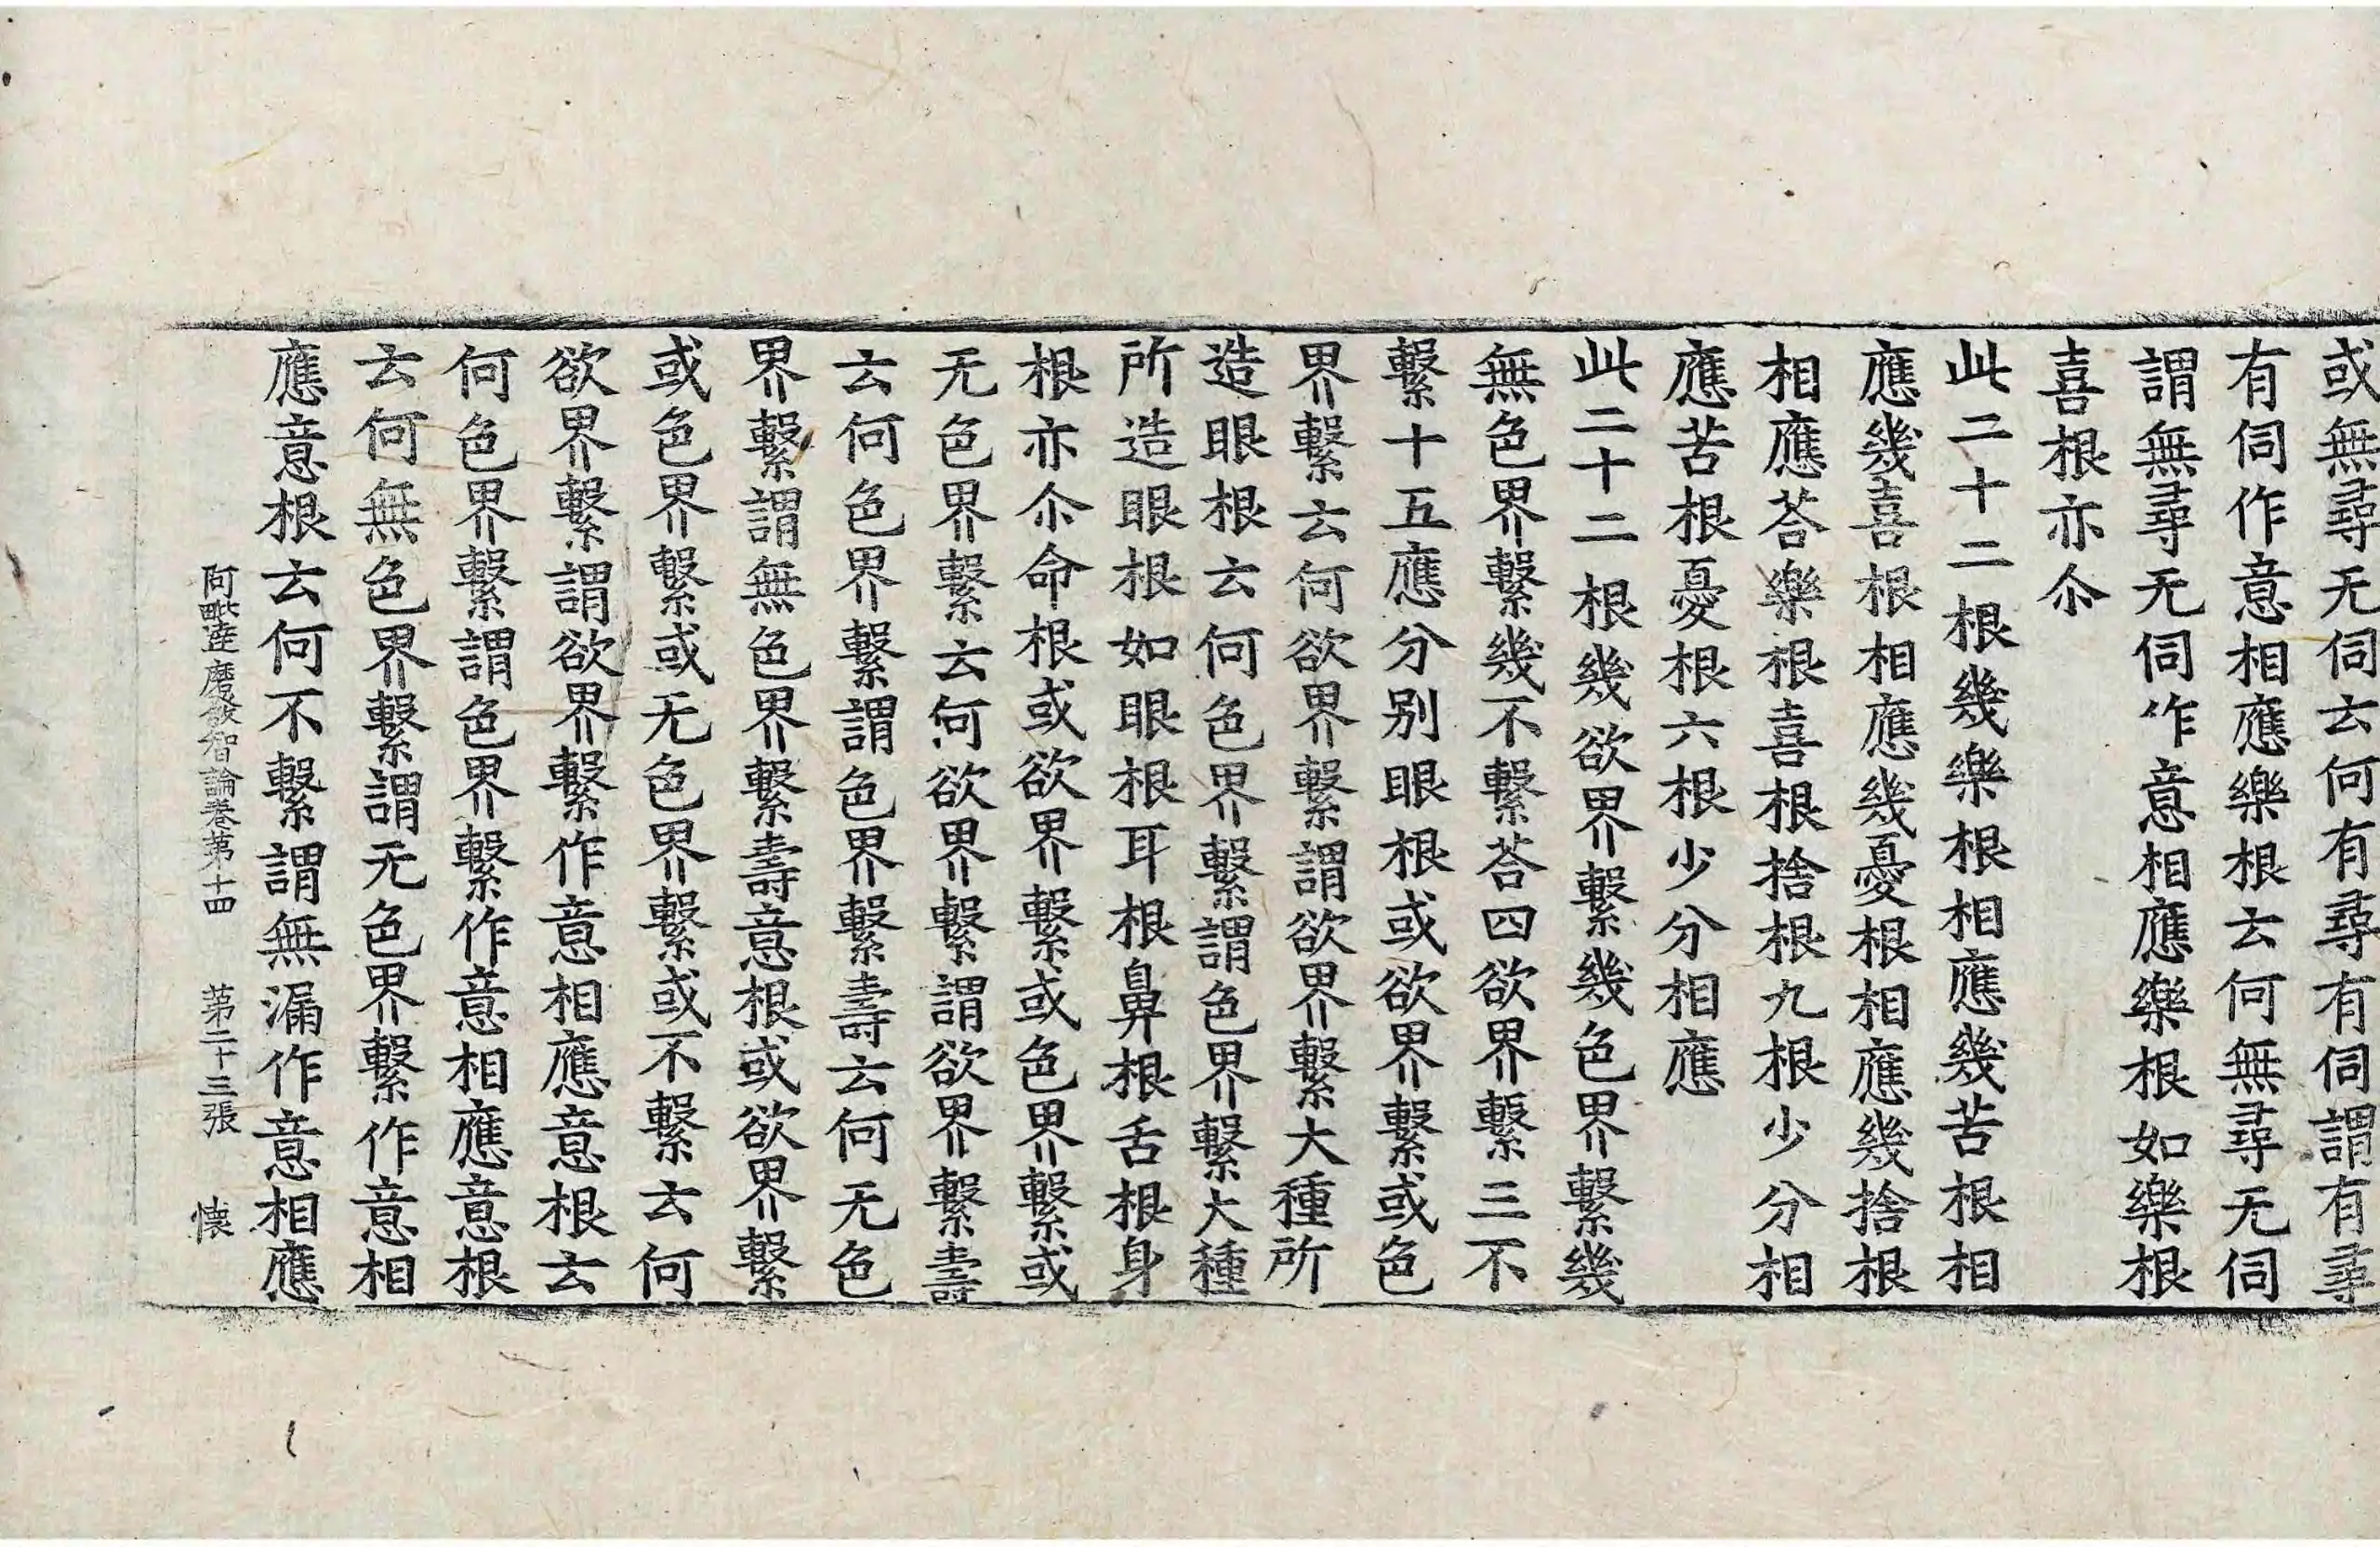 或無尋无伺云何有尋有伺謂有尋
有伺作意相應樂根云何無尋无伺
謂無尋无伺作意相應樂根如樂根
喜根亦尒
此二十二根幾樂根相應幾苦根相
應幾喜根相應幾憂根相應幾捨根
相應荅樂根喜根捨根九根少分相
應苦根憂根六根少分相應
此二十二根幾欲界繫幾色界繫幾
無色界繫幾不繫荅四欲界繫三不
繫十五應分别眼根或欲界繫或色
界繫云何欲界繫謂欲界繫大種所
造眼根云何色界繫謂色界繫大種
所造眼根如眼根耳根鼻根舌根身
根亦尒命根或欲界繫或色界繫或
无色界繫云何欲界繫謂欲界繫壽
云何色界繫謂色界繫壽云何无色
界繫謂無色界繫壽意根或欲界繫
或色界繫或无色界繫或不繫云何
欲界繫謂欲界繫作意相應意根云
何色界繫謂色界繫作意相應意根
云何無色界繫謂无色界繫作意相
應意根云何不繫謂無漏作意相應
阿毗達磨發智論卷第十四 第二十三張 懐